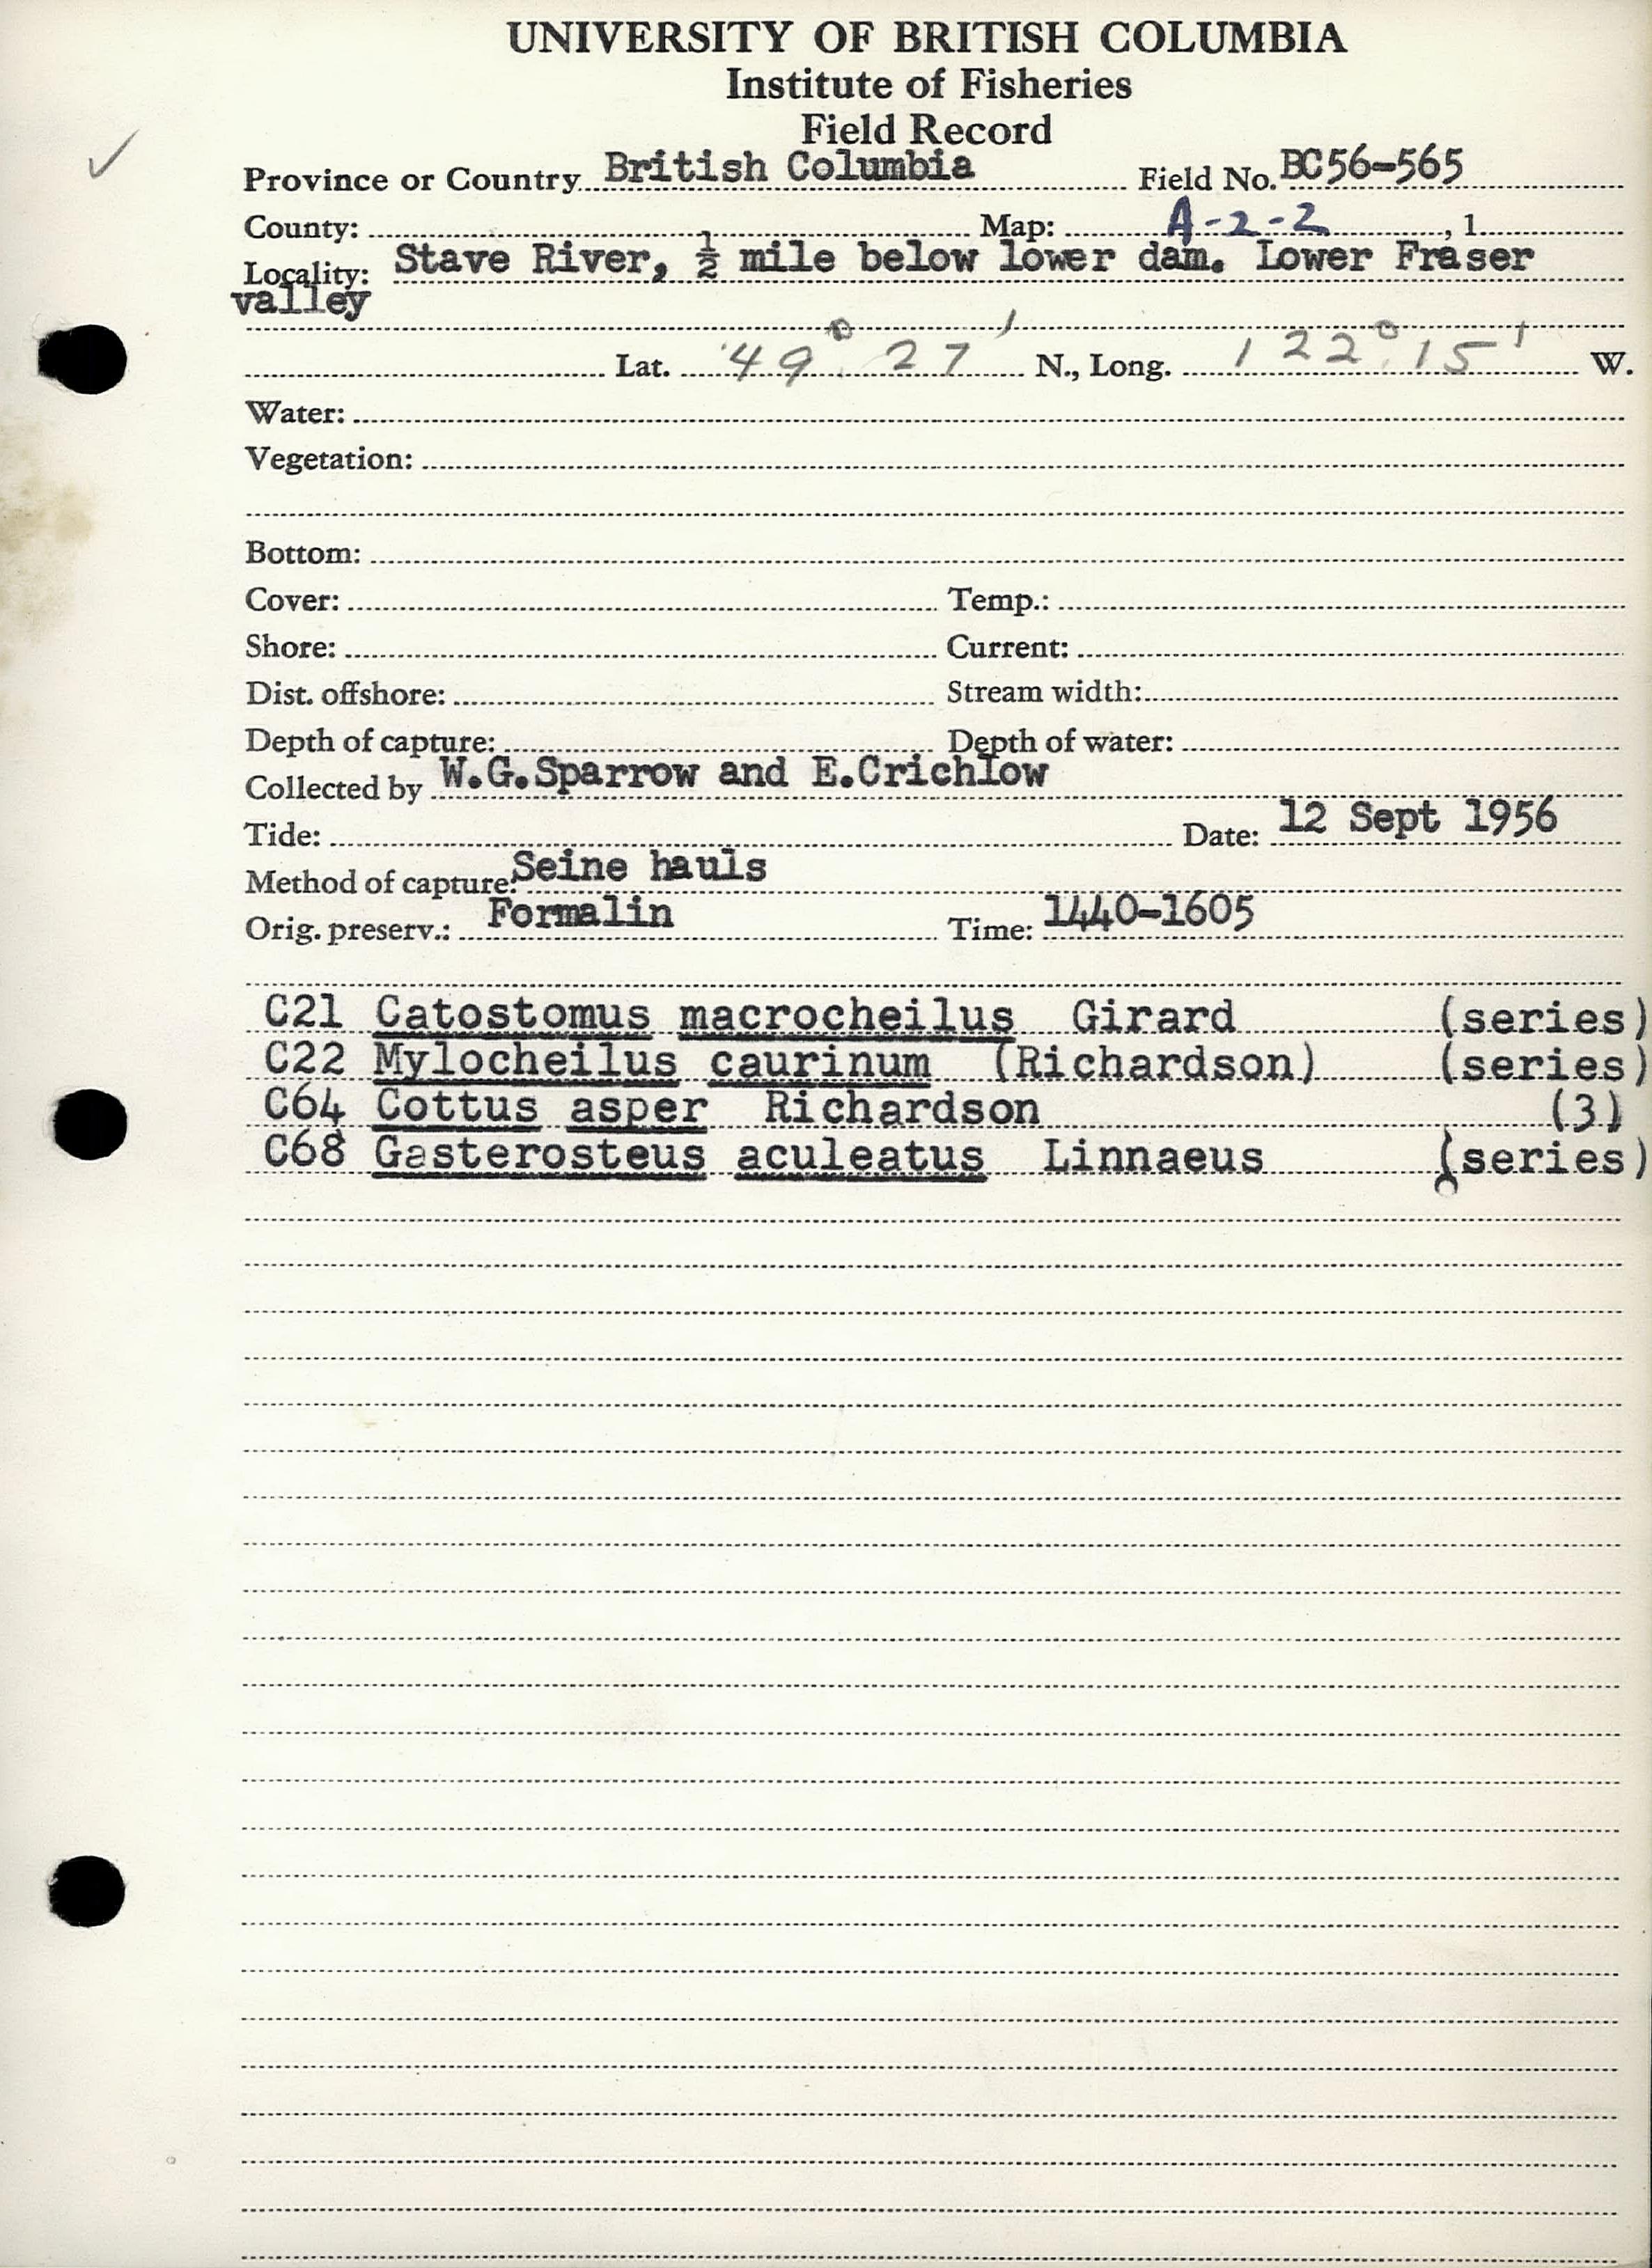 UNIVERSITY OF BRITISH COLUMBIA
Institute of Fisheries
Field Record
Province or Country British Columbia Field No. BC56-565
County: Map: A-2-2, 1
Locality: Stave River, ½ mile below lower dam. Lower Fraser
valley
Lat. 49° 27' N., Long. 122° 15' W.
Water:
Vegetation:
Bottom:
Cover: Temp.:
Shore: Current:
Dist. offshore: Stream width:
Depth of capture: Depth of water:
Collected by W.G.Sparrow and E.Crichlow
Tide: Date: 12 Sept 1956
Method of capture: Seine hauls
Orig. preserv.: Formalin Time: 1440-1605
C21 Catostomus macrocheilus Girard (series)
C22 Mylocheilus caurinum (Richardson) (series)
C64 Cottus asper Richardson (3)
C68 Gasterosteus aculeatus Linnaeus (series)